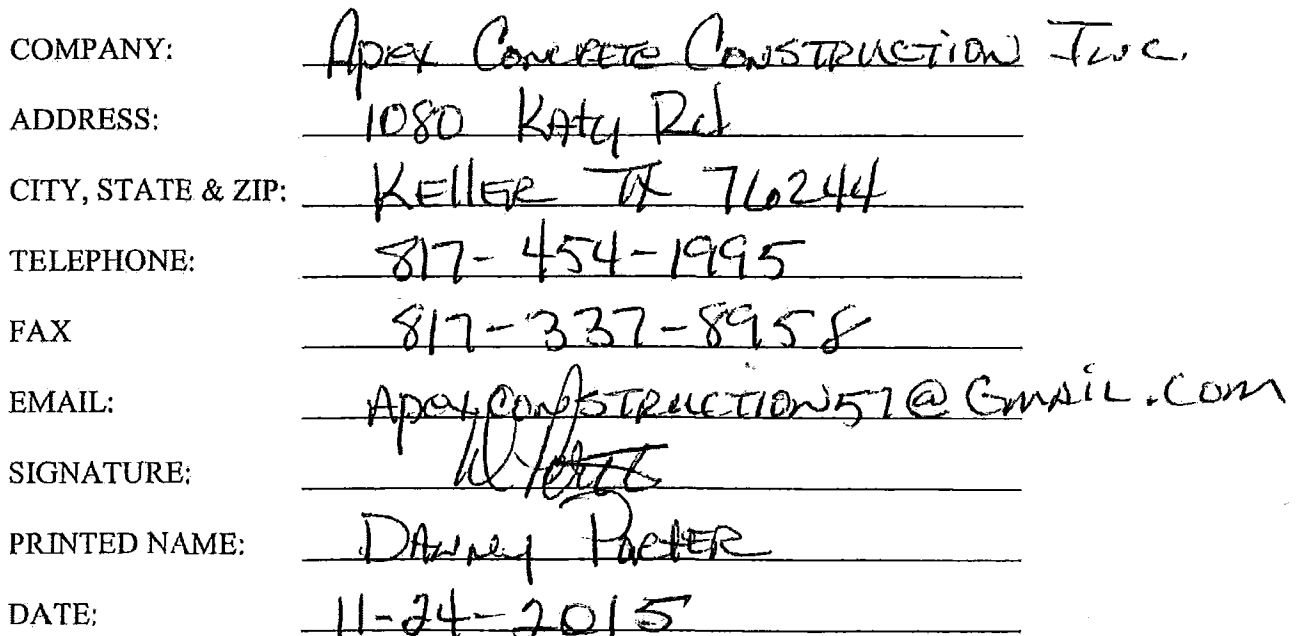 COMPANY: Apex Concrete Construction Inc.
ADDRESS: 1080 Katy Rd
CITY, STATE & ZIP: Keller TX 76244
TELEPHONE: 817-454-1995
FAX 817-337-8958
EMAIL: @Gmail.com
SIGNATURE:
PRINTED NAME: Danny Porter
DATE: 11-24-2015